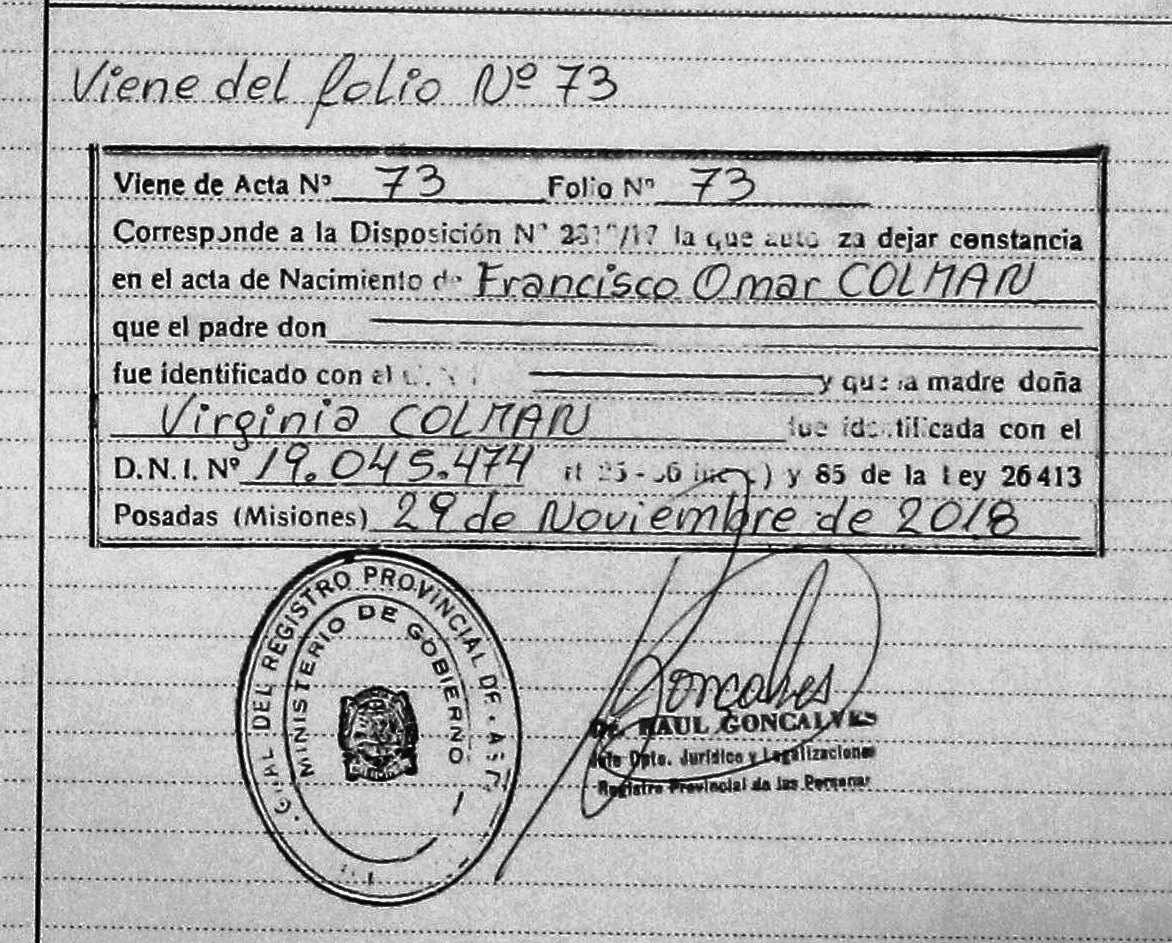 Viene del folio Nº 73
Viene de Acta Nº 73 Folio Nº 73
Corresponde a la Disposición Nº la que dejar constancia
en el acta de Nacimiento de Francisco Omar COLMAN
que el padre don
fue identificado con el y que la madre doña
Virginia COLMAN fue identificada con el
D.N.I. Nº 19.045.474 y 85 de la Ley 26413
Posadas (Misiones) 29 de Noviembre de 2018
DEL REGISTRO PROVINCIAL DE
MINISTERIO DE GOBIERNO
Goncalves
Dr. RAUL GONCALVES
Jefe Dpto. Jurídico y Legalizaciones
Registro Provincial de las Personas